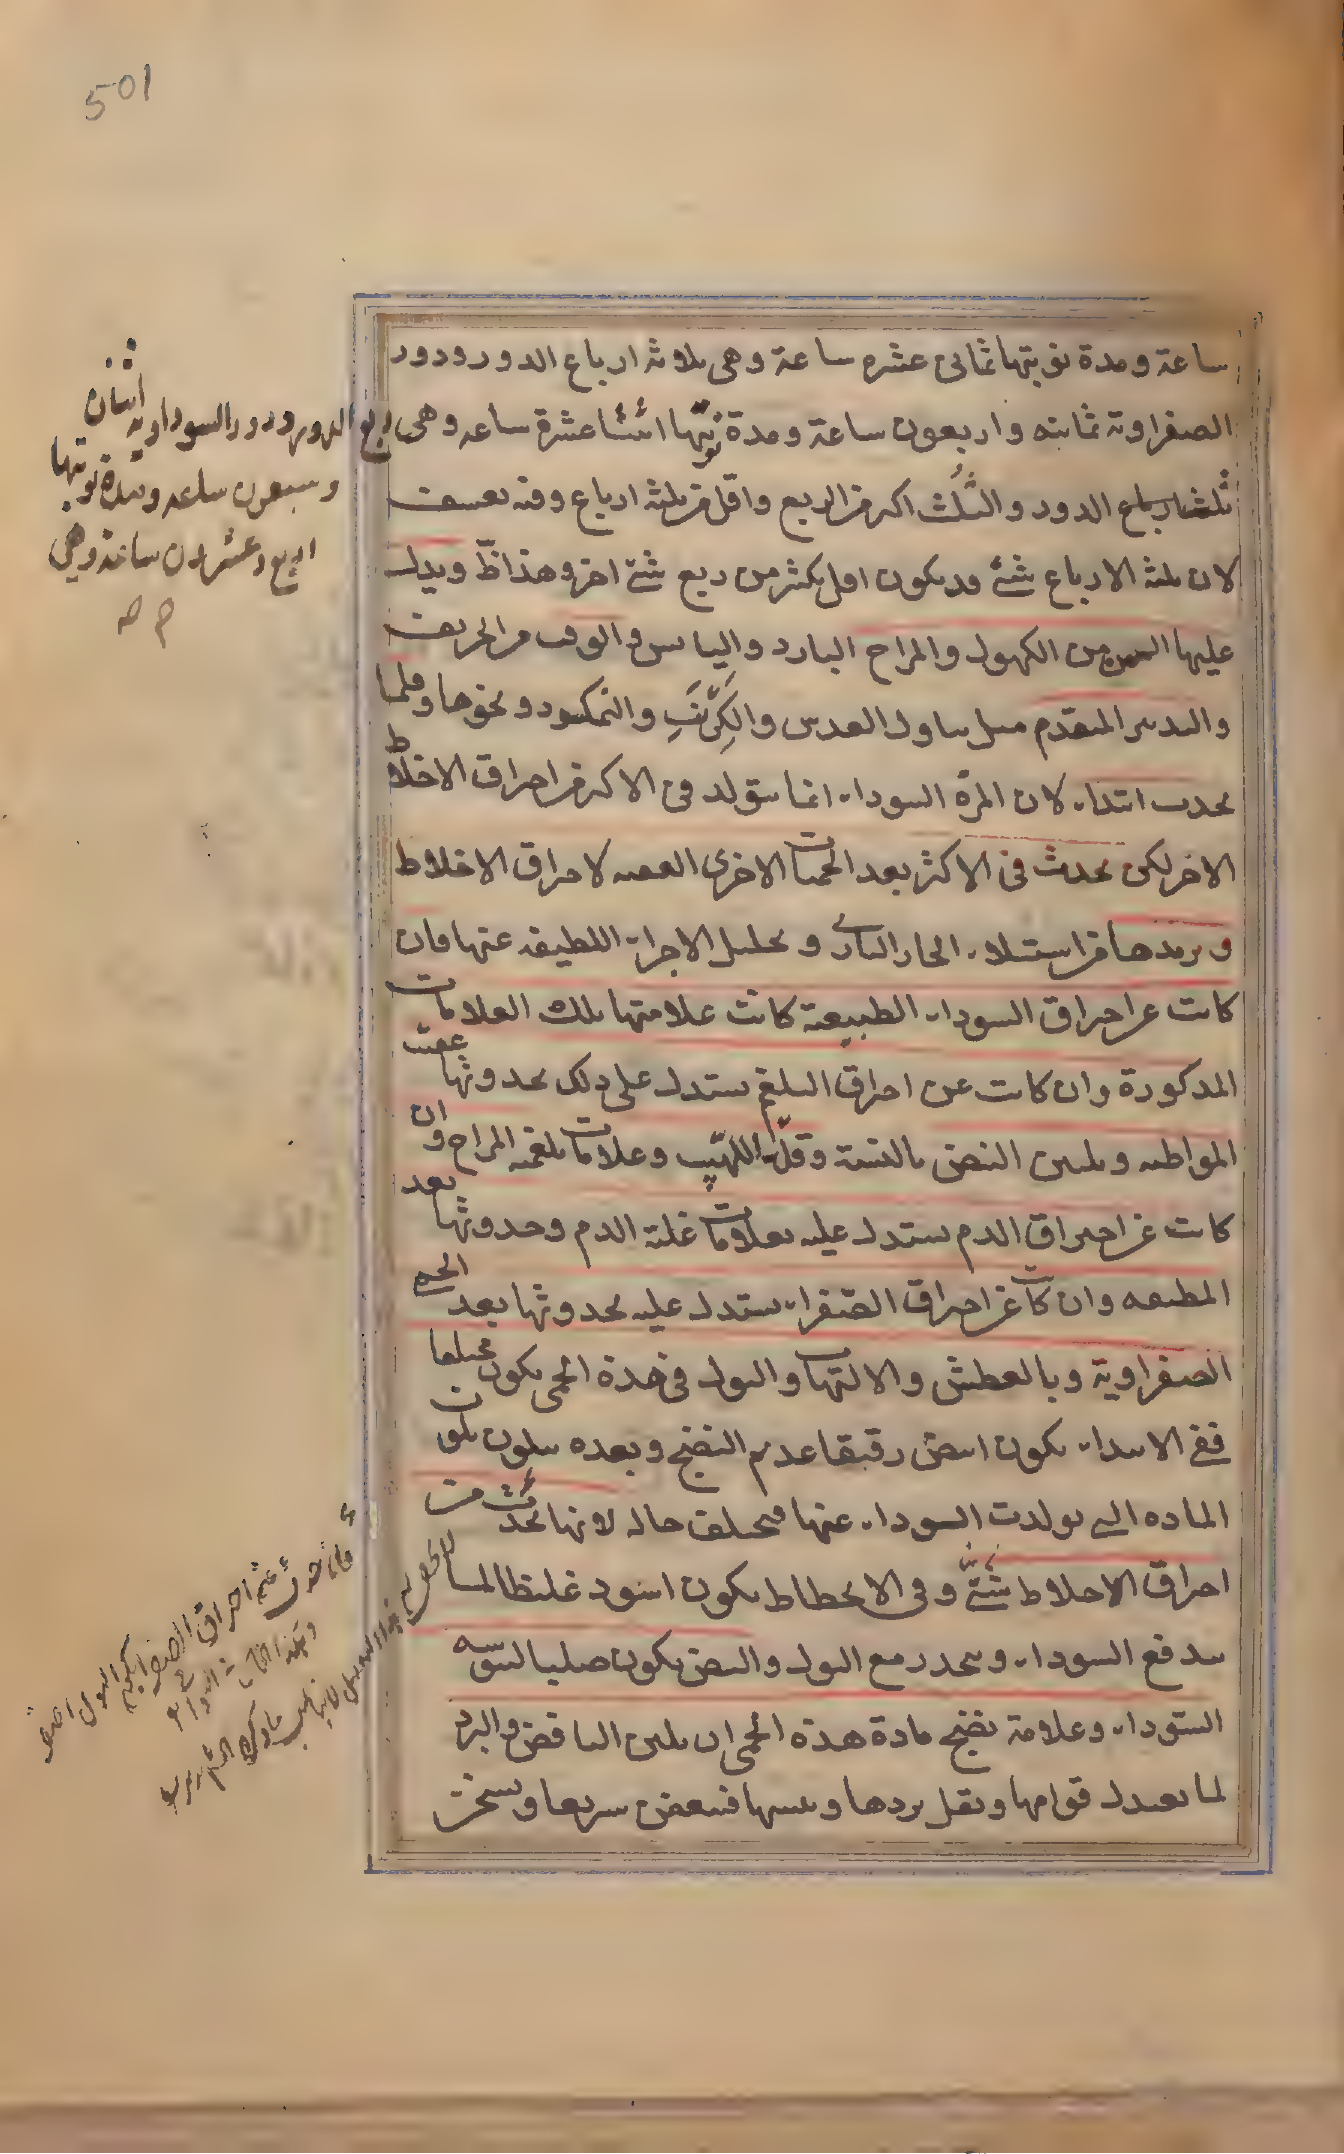 501
ساعة ومدة نوبتها ثمانى عشره ساعة وهى ثلاثة ارباع الدور ودور
الصفراوية ثمانيه واربعون ساعة ومدة نوبتها اثنتا عشرة ساعه وهى ربع الدور ودور السوداوية اثنان
وسبعون ساعه ومدة نوبتها
اربع وعشرون ساعة وهى
ثلث الدور والثلث اكثر من الربع واقل من ثلثة ارباع وفيه تعسف
لان ثلثة الارباع شئ قد يكون اقل بكثير من ربع شئ اخر وهذا ظ ويدل
عليها السن من الكهول والمزاج البارد واليابس والوقت من الخريف
والتدبير المتقدم مثل تناول العدس والكرنب والنمكسود ونحوها وقلما
يحدث ابتداء لان المرة السوداء انما تتولد فى الاكثر من احراق الاخلاط
الاخر لكن يحدث فى الاكثر بعد الحميات الاخرى العفنه لاحراق الاخلاط
وترمدها من استيلاء الحار النارى وتحليل الاجزاء اللطيفه عنها فان
كانت عن احراق السوداء الطبيعية كانت علامتها تلك العلامات
المذكورة وان كانت عن احراق البلغم يستدل على ذلك بحدوثها عقيب
المواظبه وبلين النبض بالنسبة وقلة اللهيب وعلامات بلغميه المزاج وان
كانت عن احراق الدم يستدل عليه بعلامات غلبة الدم وحدوثها بعد
المطبقه وان كانت عن احراق الصفراء يستدل عليه بحدوثها بعد الحمى
الصفراوية وبالعطش والالتهاب والبول فى هذه الحمى يكون مختلفا
ففى الابتداء يكون ابيض رقيقا عديم النضج وبعده يتلون بلون
الماده التى تولدت السوداء عنها فيختلف حاله لانها تحدث من
احراق الاخلاط شتى وفى الانحطاط يكون اسود غليظا لما
يندفع السوداء وينحدر مع البول والنبض يكون صلبا ليبوسه
السوداء وعلامة نضج مادة هذه الحمى ان يلين النافض والبرد
لما يعتدل قوامها ويقل بردها ويبسها فتعفن سريعا ويسخن